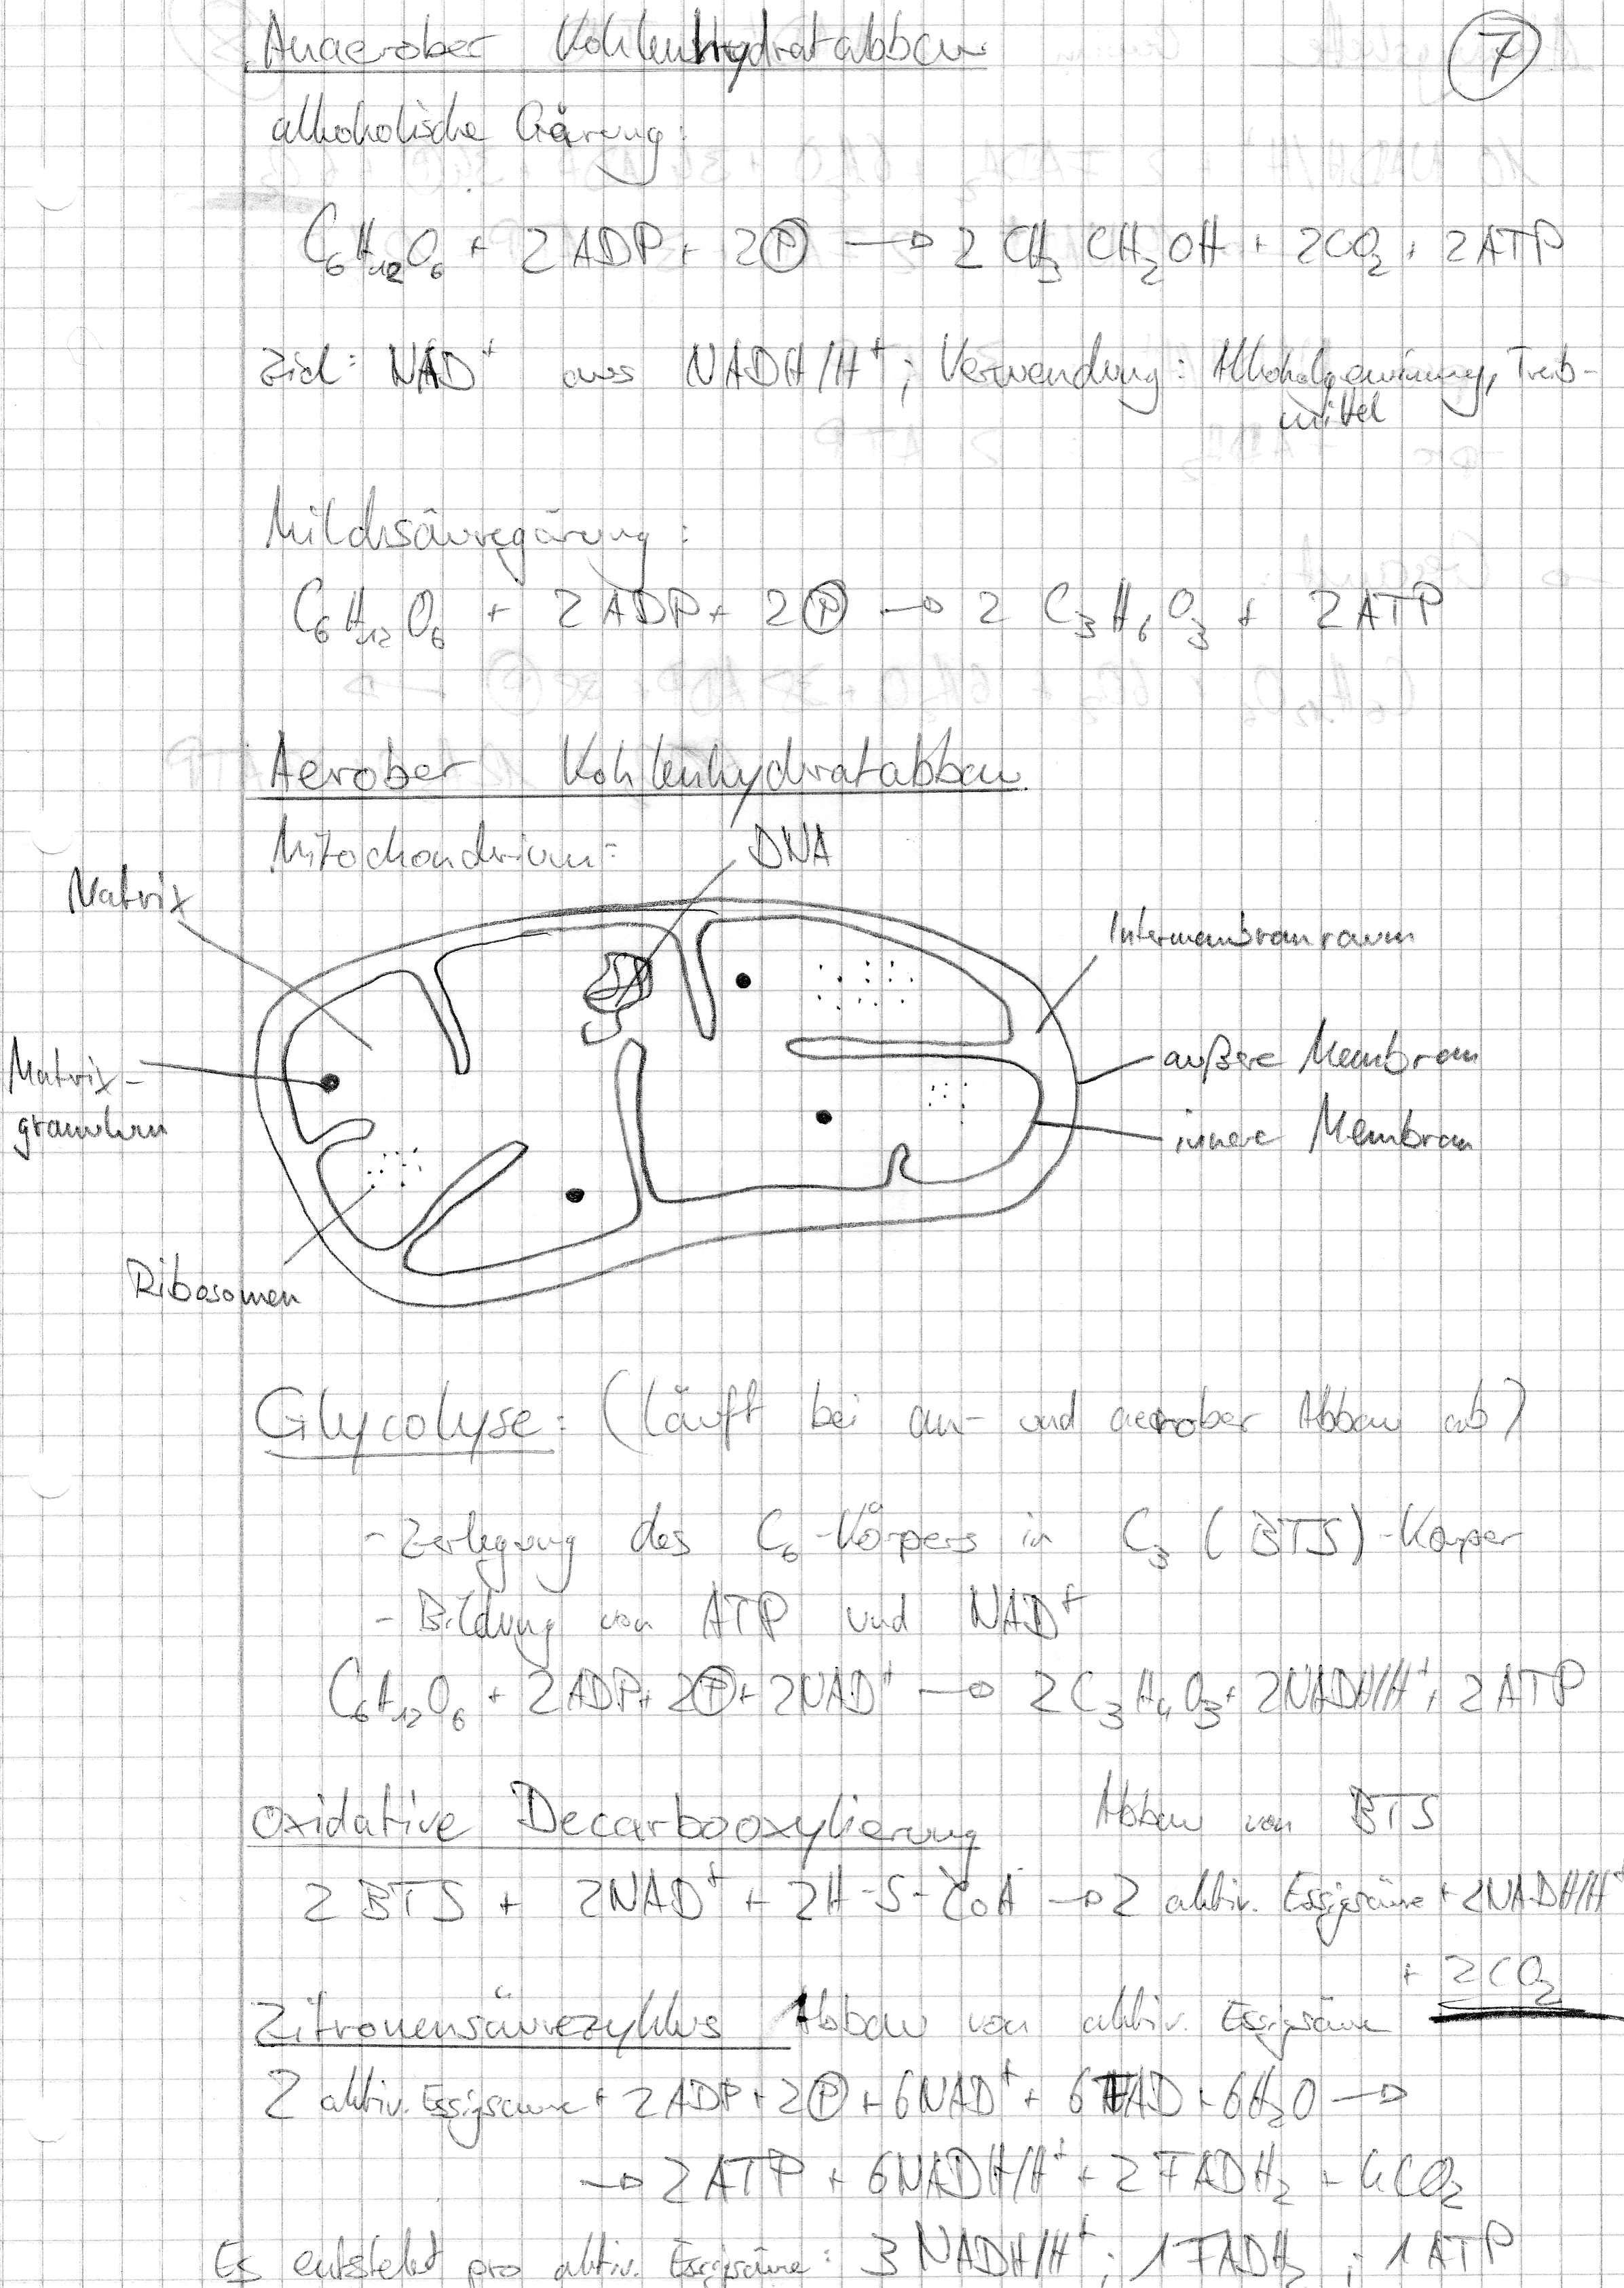 Anaerober Kohlenhydratabbau
7
alkoholische Gärung:
C₆H₁₂O₆ + 2 ADP + 2 Ⓟ → 2 CH₃ CH₂OH + 2CO₂ + 2ATP
Ziel: NAD⁺ aus NADH/H⁺; Verwendung: Alkoholgewinnung, Treib-
mittel
Milchsäuregärung:
C₆H₁₂O₆ + 2 ADP + 2 Ⓟ → 2 C₃H₆O₃ + 2 ATP
Aerober Kohlenhydratabbau
Mitochondrium:
DNA
Matrix
Intermembranraum
Matrix-
granulum
außere Membran
innere Membran
Ribosomen
Glycolyse: (läuft bei an- und aerober Abbau ab)
- Zerlegung des C₆-Körpers in C₃ (BTS)-Körper
- Bildung von ATP und NAD⁺
C₆H₁₂O₆ + 2ADP + 2Ⓟ + 2NAD⁺ → 2C₃H₄O₃ + 2NADH/H⁺ + 2 ATP
oxidative Decarbooxylierung Abbau von BTS
2 BTS + 2NAD⁺ + 2H-S-CoA → 2 aktiv. Essigsäure + 2NADH/H⁺
+ 2CO₂
Zitronensäurezyklus Abbau von aktiv. Essigsäure
2 aktiv. Essigsäure + 2ADP + 2Ⓟ + 6NAD⁺ + 6FAD + 6H₂O →
→ 2ATP + 6NADH/H⁺ + 2FADH₂ + 4CO₂
Es entsteht pro aktiv. Essigsäure: 3 NADH/H⁺ ; 1 FADH₂ ; 1 ATP